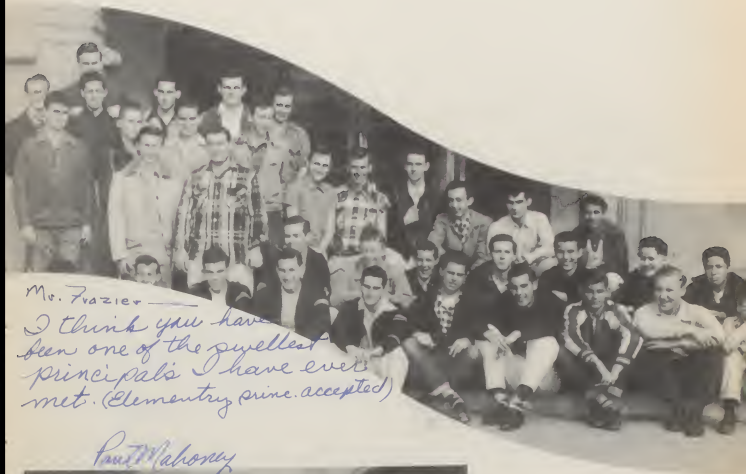 Mr. Frazier —
I think you have
been one of the swellest
principals I have ever
met. (Elementry princ. accepted)
Paul Mahoney